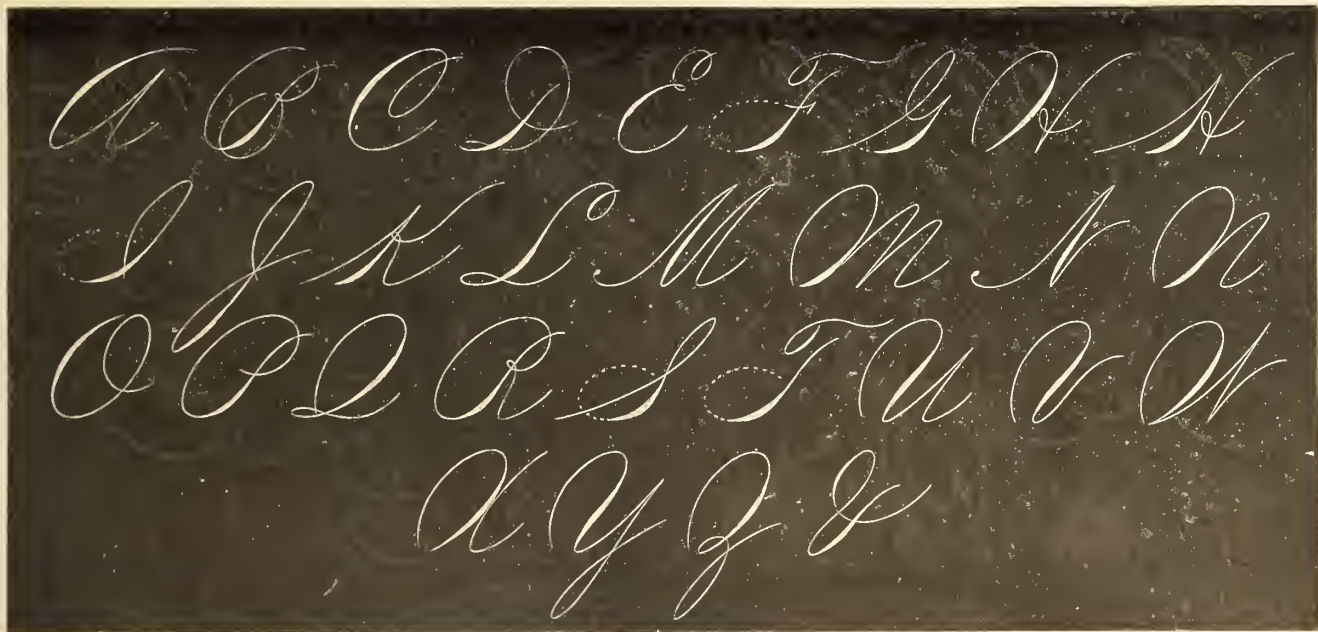 A B C D E F G H H
I J K L M M N N
O P Q R S T U V W
X Y Z &